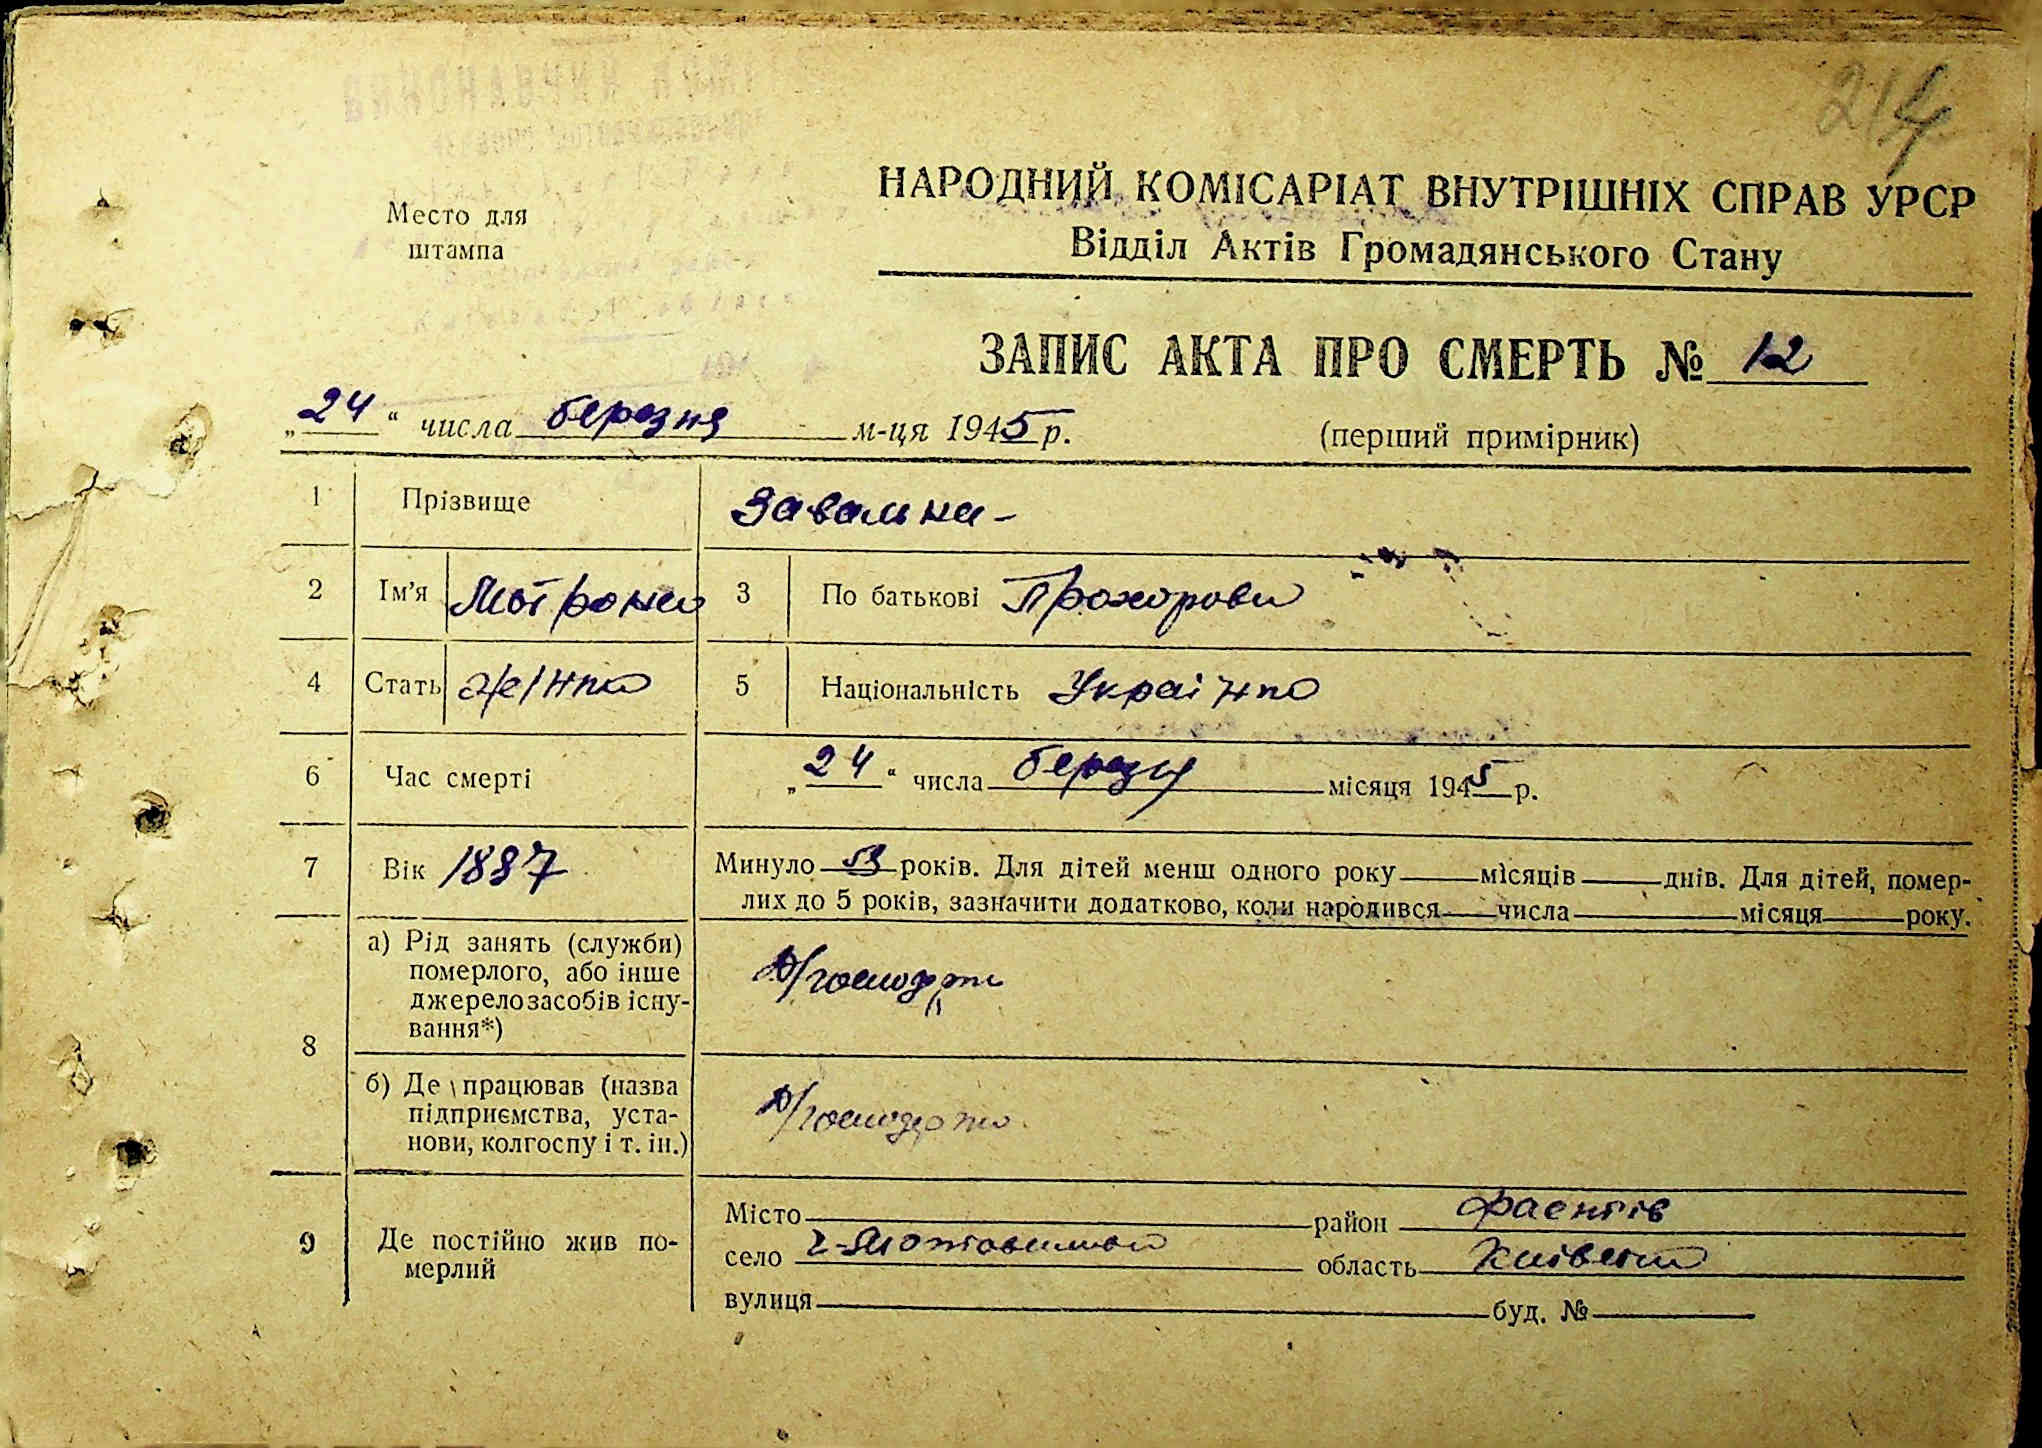 214
Место для
штампа
НАРОДНИЙ КОМІСАРІАТ ВНУТРІШНІХ СПРАВ УРСР
Відділ Актів Громадянського Стану
ЗАПИС АКТА ПРО СМЕРТЬ № 12
„24“ числа березня м-ця 1945 р.
(перший примірник)
1 Прізвище Завальна
2 Ім’я Мотрона 3 По батькові Прохорови
4 Стать жінка 5 Національність Українка
6 Час смерті „24“ числа березня місяця 1945 р.
7 Вік 1887 Минуло років. Для дітей менш одного року місяців днів. Для дітей, помер-
лих до 5 років, зазначити додатково, коли народився числа місяця року.
8 а) Рід занять (служби)
померлого, або інше
джерело засобів існу-
вання*)
б) Де працював (назва
підприємства, уста-
нови, колгоспу і т. ін.)
9 Де постійно жив по-
мерлий
Місто район Фастів
село область Київська
вулиця буд. №